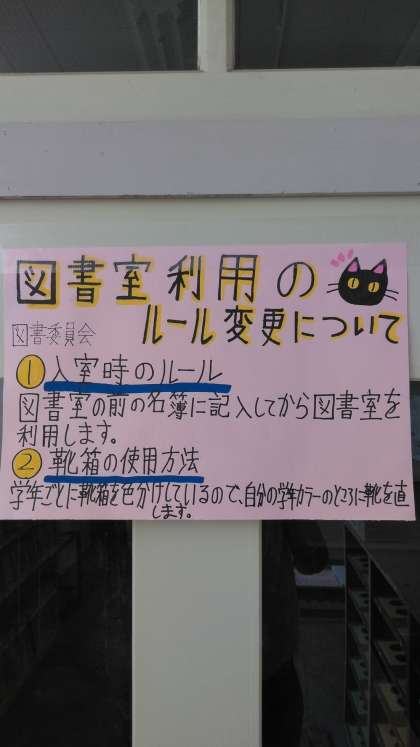 図書室利用の
ルール変更について
図書委員会
① 入室時のルール
図書室の前の名簿に記入してから図書室を
利用します。
② 靴箱の使用方法
学年ごとに靴箱を色分けしているので、自分の学年カラーのところに靴を直
します。